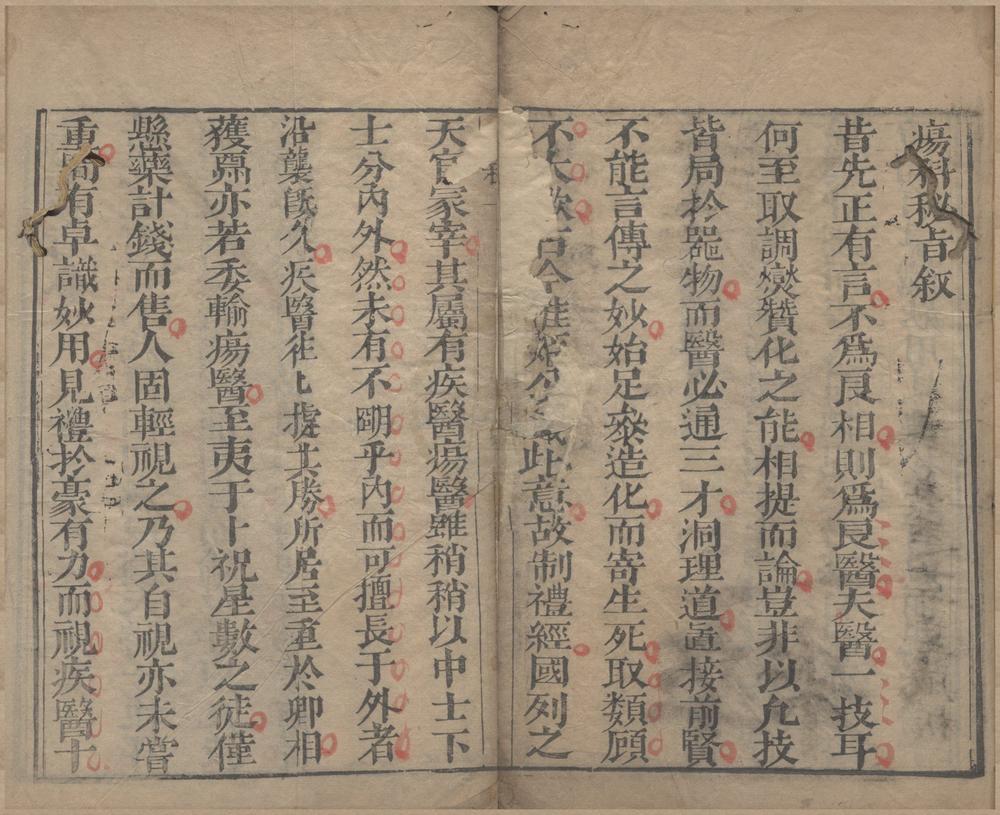 瘍科秘旨叙
昔先正有言不爲良相則爲良醫夫醫一技耳
何至取調爕贊化之能相提而論豈非以凢技
皆局於噐物而醫必通三才洞理道直接前賢
不能言傳之妙始足叅造化而寄生死取類顧
不大歟古今此意故制禮經國列之
天官冡宰其屬有疾醫瘍醫雖稍稍以中士下
士分內外然未有不朙乎內而可擅長于外者
沿襲旣久疾醫徃上據其勝所居至重於卿相
獲鼐亦若委輸瘍醫至夷于卜祝星數之徒僅
懸藥計錢而售人固輕視之乃其自視亦未嘗
重間有卓識妙用見禮於豪有力而視疾醫十